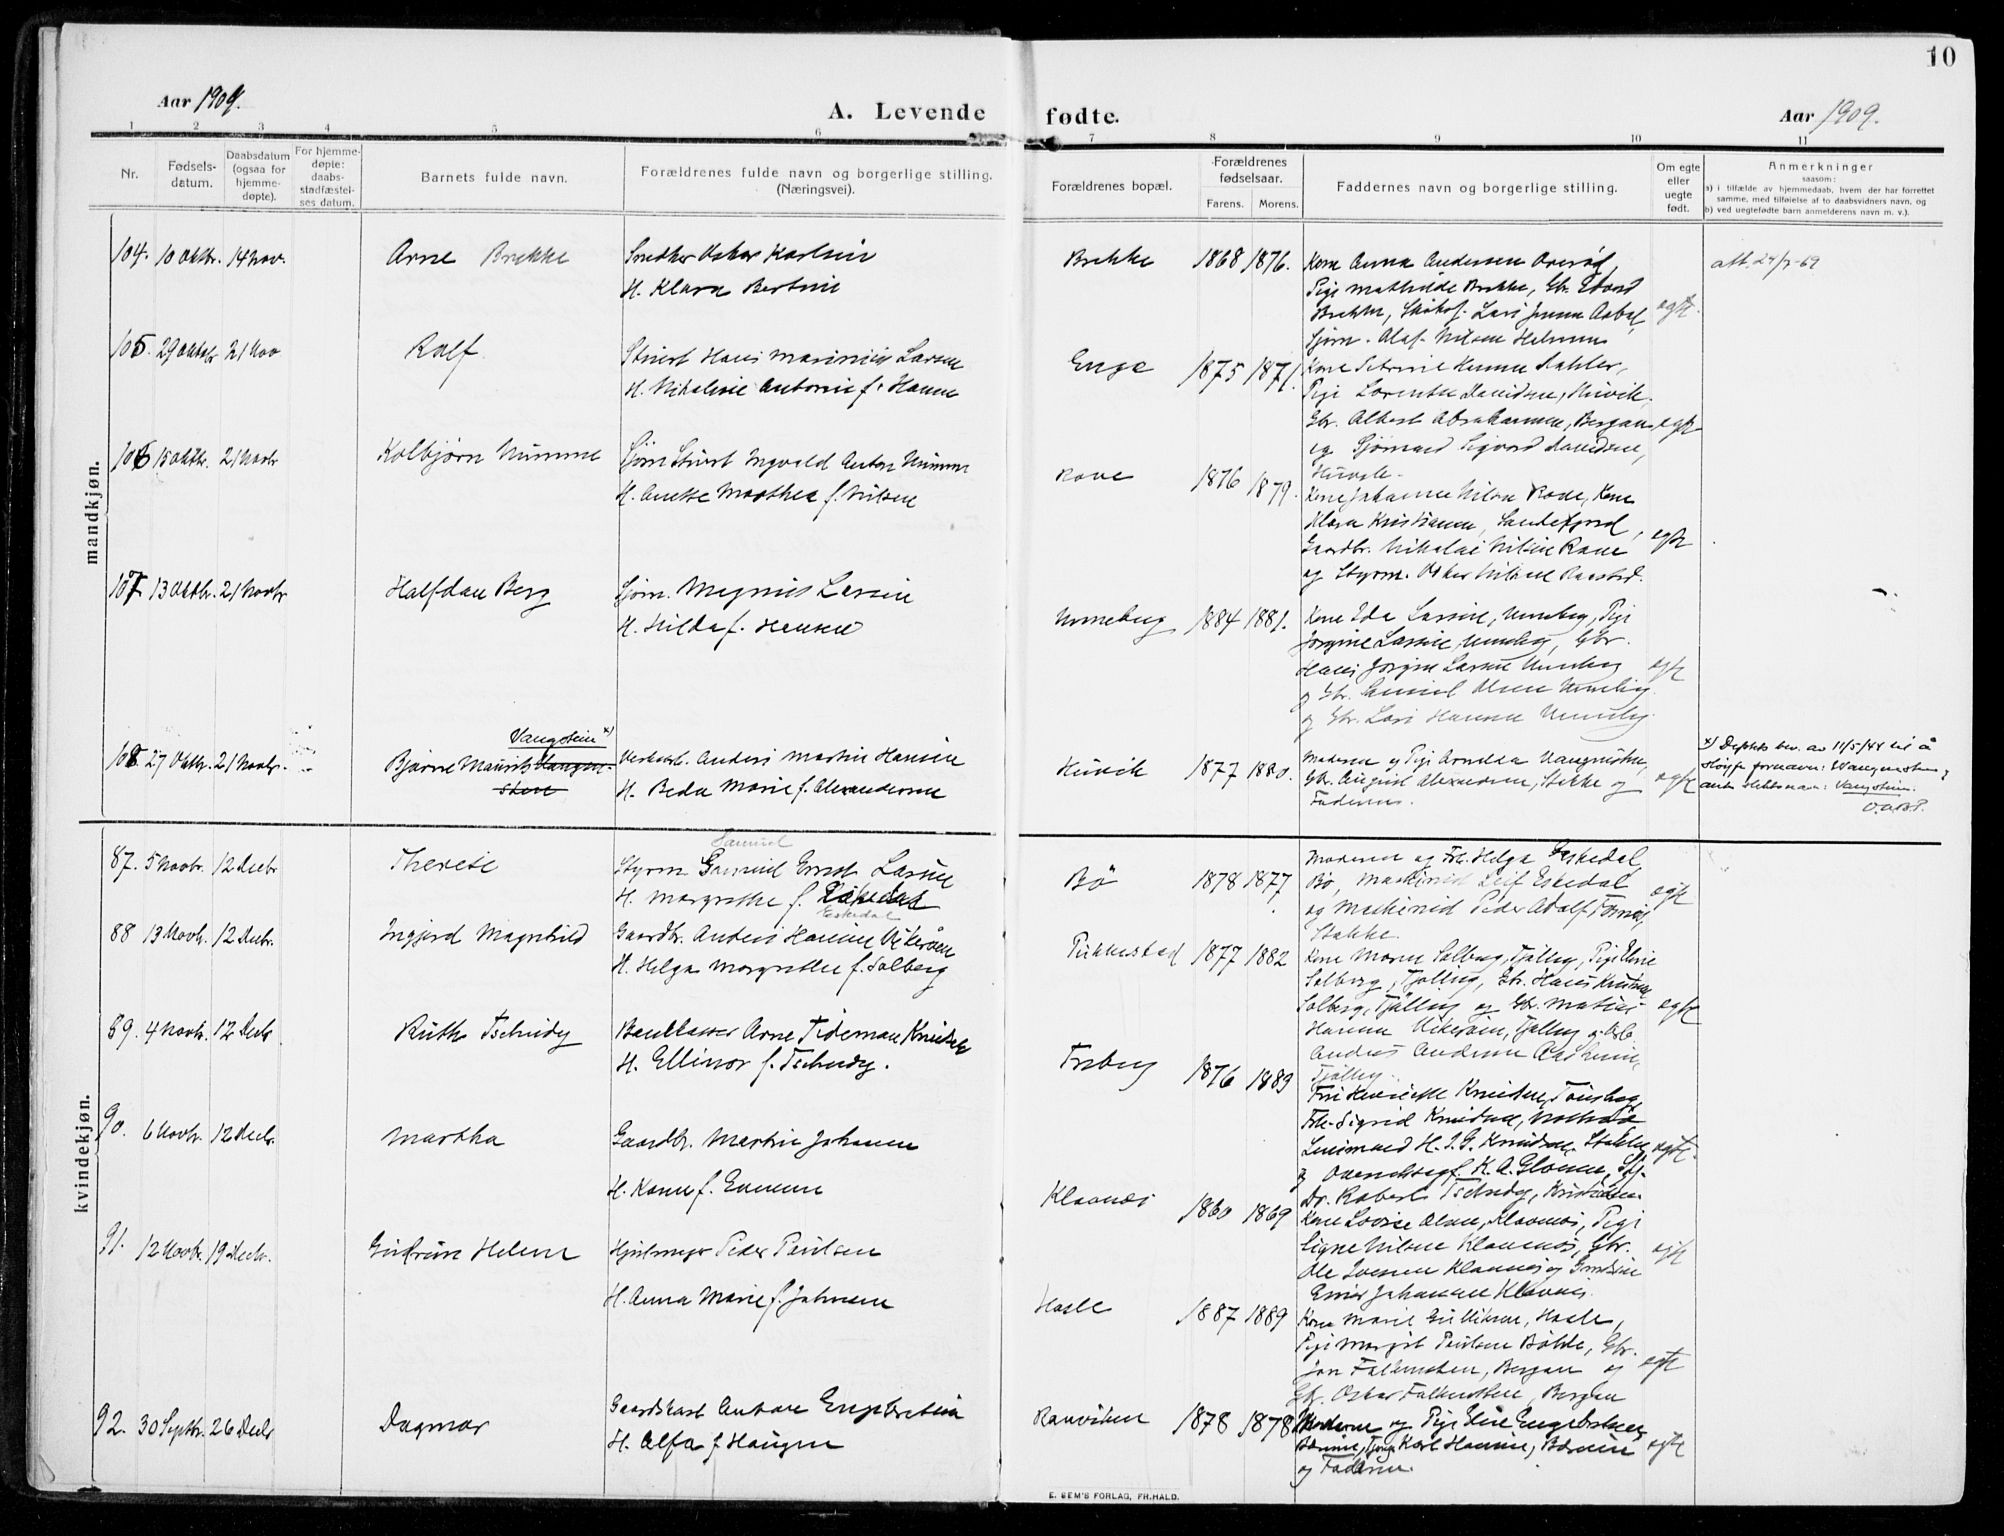 10
Aar 1909.
A. Levende fødte.
Aar 1909.
1 2 3 4 5 6 7 8 9 10 11
Nr.
Fødsels-
datum.
Daabsdatum
(ogsaa for
hjemme-
døpte).
For hjemme-
døpte:
daabs-
stadfæstel-
ses datum.
Barnets fulde navn.
Forældrenes fulde navn og borgerlige stilling.
(Næringsvei).
Forældrenes bopæl.
Forældrenes
fødselsaar.
Farens. Morens.
Faddernes navn og borgerlige stilling.
Om egte
eller
uegte
født.
Anmerkninger
saasom:
a) i tilfælde av hjemmedaab, hvem der har forrettet
samme, med tilføielse af to daabsvidners navn, og
b) ved uegtefødte barn anmelderens navn m. v.).
mandkjøn.
104. 10 Oktbr. 14 Nov. Arne Brekke
Oskar Karlsen
H. Klara Bertine
Brekke 1868 1876.
Kone Anna Andersen
Pige Mathilde Brekke, Gbr.
Brekke,
Olaf Nilsen
egte.
att. 24/7-69
105. 29 Oktbr 21 Nov Rolf.
Stuert Hans Marinius Larsen
H. Nikoline Antonie f. Hansen
Enge 1875 1871.
Kone
Pige Lorentse Davidsen, Huvik,
Gbr. Albert Abrahamsen, Bergan
og Sjømand Sigvord Davidsen,
Huvik.
egte
106 15 Oktbr. 21 Novbr Kolbjørn Numme
Sjøm Stuert Ingvald Anton Numme
H. Anette Marthea f. Nilsen
Rove 1876 1879.
Kone Johanne Nilsen Rove, Kone
Klara Kristiansen, Sandefjord,
Gaardbr. Nikolai Nilsen Rove
og Styrm. Oskar Raastad.
egte
107 13 Oktbr. 21 Novbr Halfdan Berg
Sjøm. Magnus Larsen
H. Hilda f. Hansen
Unneberg 1884 1881.
Kone Ida Larsen, Unneberg, Pige
Jørgine Larsen, Unneberg, Gbr.
Hans Jørgen Larsen Unneberg
og Gbr. Olsen Unneberg.
og Gbr. Lars Hansen Unneberg.
egte
108 27 Oktbr. 21 Novbr. Bjarne Maurits Vangen-
sten
Vangstein x)
Anders Martin Hansen
H. Beda Marie f. Alexandersen
Huvik 1877 1880.
Moderen og Pige Arndea Vangensten,
Gbr. August Alexandersen, Støkke og
Faderen.
egte
x) Depts bev. av 11/5/44 til å
sløyfe fornavn: Vangensten og
anta slektsnavn: Vangstein.
kvindekjøn.
87. 5 Novbr. 12 Decbr Therese
Samuel
Styrm Gamuel Ernst Larsen
H. Margrethe f.
Eskedal
Bø 1878 1877
Moderen og Frk. Helga Eskedal,
Bø, Maskinist Leif Eskedal
og Maskinist Peder Adolf
Stokke.
egte
88 13 Novbr. 12 Decbr. Ingjerd Magnhild
Gaardbr. Anders Hansen Vikerøen
H. Helga Margrethe f. Solberg
Pukkestad 1877 1882
Kone Maren Solberg, Tjølling, Pige
Solberg, Tjølling, Gbr. Hans
Solberg, Tjølling og Gbr. Matias
Hansen Vikerøen, Tjølling og
Anders Andersen
Tjølling.
egte
89. 4 Novbr. 12 Decbr Ruth Tschudy
Bankkasser Arne Tideman Knudsen
H. Ellinor f. Tschudy.
Freberg 1876 1889
Fru Henriette Knudsen, Tønsberg,
Frk. Sigrid Knudsen,
H. J. G. Knudsen, Stokke
og K. A.
Dr. Robert Tschudy,
egte.
90. 6 Novbr. 12 Decbr. Martha
Gaardbr. Martin Johansen
H. Karen f. Evensen
Klavnes 1860 1869
Kone Lovise Olsen, Klavenes, Pige
Signe Nilsen Klavenes, Gbr.
Ole Iversen Klavnes og
Einar Johansen Klavnes.
egte
91. 12 Novbr. 19 Decbr. Gudrun Helene
Peder Paulsen
H. Anna Marie f. Johnsen
Hasle 1887 1889
Kone Marie Gulliksen, Hasle,
Pige Margit Paulsen Bøkke, Gbr.
Jon Falkensten, Bergan og
Gbr. Oskar Falkensten, Bergan
egte
92. 30 Septbr. 26 Decbr Dagmar
Gaardskarl Anton Engebretsen
H. Alfa f Haugen
Ranviken 1878 1878
Moderen og Pige Engebretsen,
Karl Hansen,
og Faderen.
egte
E. SEM'S FORLAG, FR.HALD.